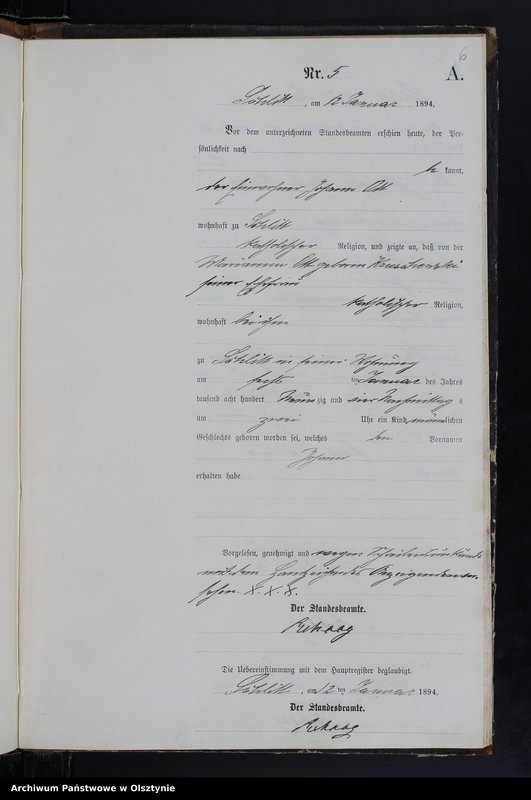 6
Nr. 5 A.
Schlitt, am 12 Januar 1894.
Vor dem unterzeichneten Standesbeamten erschien heute, der Per-
sönlichkeit nach
be kannt,
der Einwohner Johann Ott
wohnhaft zu Schlitt
katholischer Religion, und zeigte an, daß von der
Marianna Ott geboren
seiner Ehefrau
katholischer Religion,
wohnhaft bei ihm
zu Schlitt in seiner Wohnung
am sechs ten Januar des Jahres
tausend acht hundert Neun zig und vier Nachmittag s
um zwei Uhr ein Kind männlichen
Geschlechts geboren worden sei, welches den Vornamen
Johann
erhalten habe
Vorgelesen, genehmigt und wegen Schreibensunkunde
mit dem Handzeichen des Anzeigenden ver-
sehen. X. X. X.
Der Standesbeamte.
Rehaag
Die Uebereinstimmung mit dem Hauptregister beglaubigt.
Schlitt, am 12 ten Januar 1894.
Der Standesbeamte.
Rehaag
Archiwum Państwowe w Olsztynie